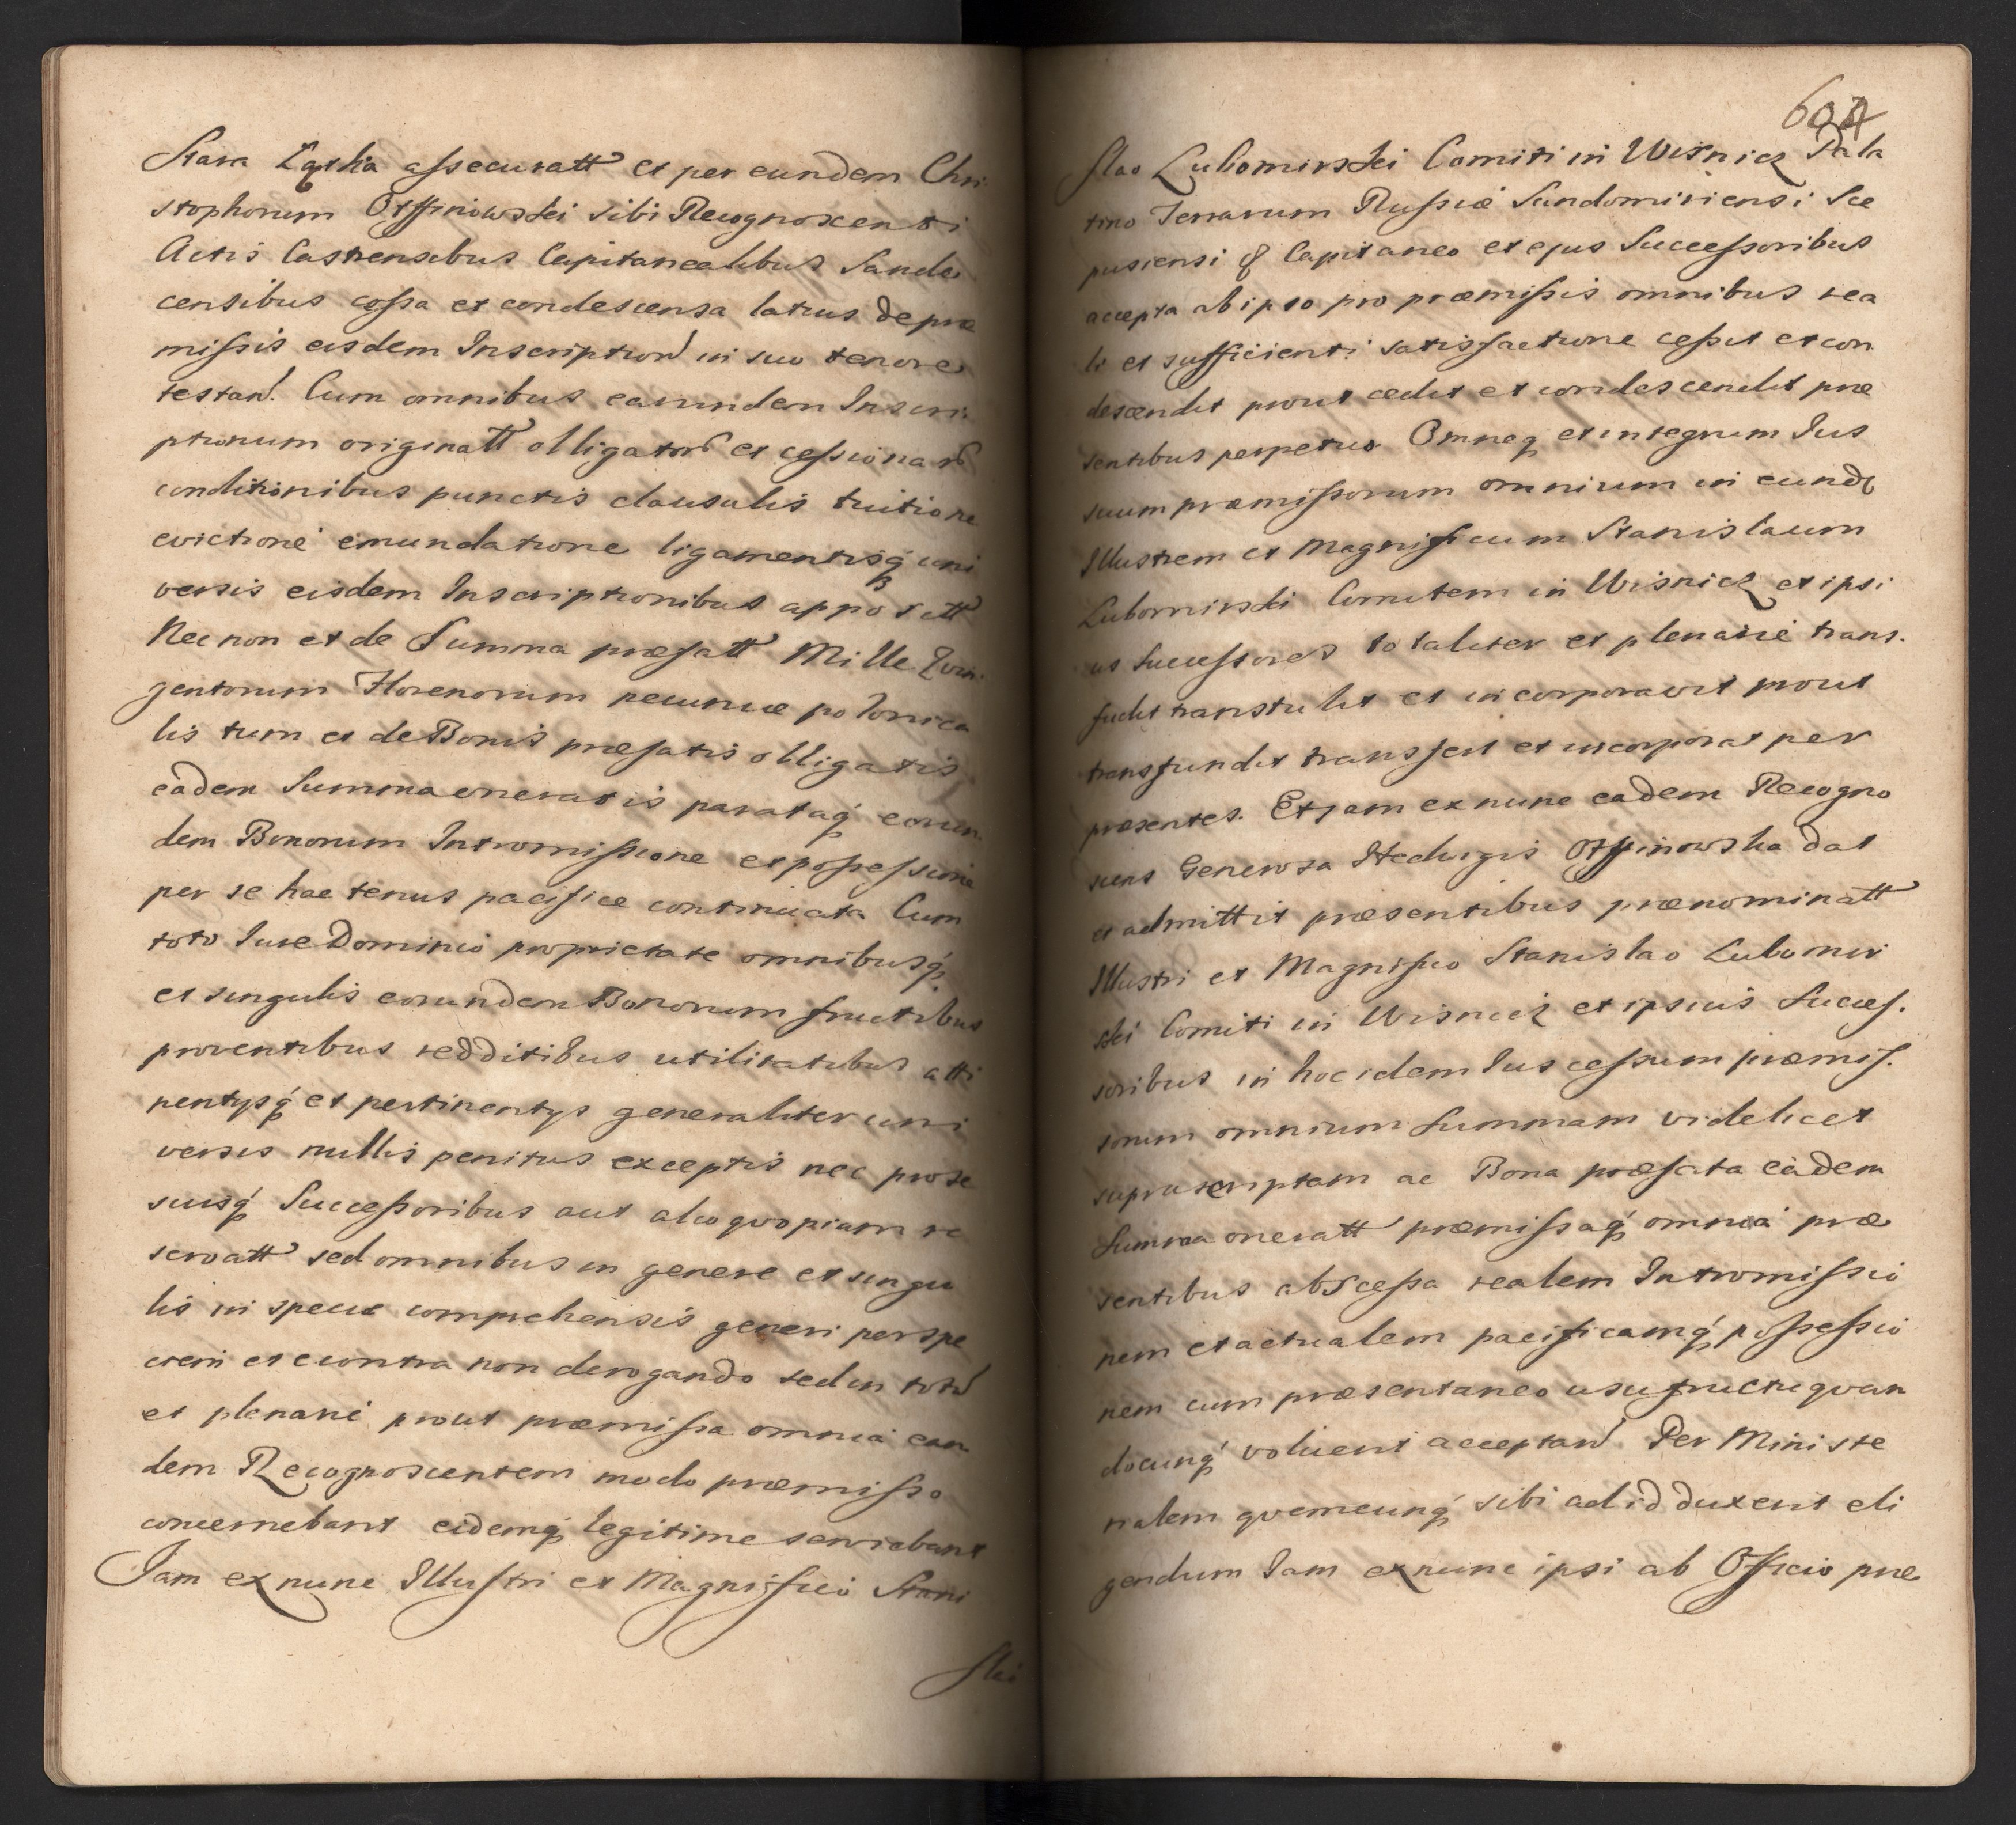 Stara Łąska assecuratt et per eundem Chri
stophorum Otffinowski sibi Recognoscenti
Actis Castrensibus Capitanealibus Sande
censibus cessa et condescensa latius de præ
missis eisdem Inscription in suo tenore
testan. Cum omnibus earundem Inscri
ptionum originatt obligator et cessionar
conditionibus punctis clausulis tuitione
evictione emundatione ligamentisq uni
versis eisdem Inscriptionibus appositt
Nec non et de Summa præfatt Mille Quin
gentorum Florenorum pecuniæ polonica
lis tum et de Bonis præfatis obligatis
eadem Summa oneratis parataq eorun
dem Bonorum Intromissione et possessione
per se hactenus pacifice continuata Cum
toto Iure Dominio proprietate omnibusq
et singulis eorundem Bonorum fructibus
proventibus redditibus utilitatibus atti
nentysq et pertinentys generaliter uni
versis nullis penitus exceptis nec pro se
suisq Successoribus aut alio quopiam re
servatt sed omnibus in genere et singu
lis in specie comprehensis generi per spe
ciem et econtra non derogando sed in toto
et plenarie prout præmissa omnia ean
dem Recognoscentem modo præmisso
concernebant eidemq legitime serviebant
Jam ex nunc Illustri et Magnifico Stani
slao
604
slao Lubomirski Comiti in Wisnicz Pala
tino Terrarum Russiæ Sandomiriensi Sce
pusiensi & Capitaneo et ejus Successoribus
accepta ab ipso pro præmissis omnibus rea
li et sufficienti satisfactione cessit et con
descendit prout cedit et condescendit præ
sentibus perpetuo Omneq et integrum Ius
suum præmissorum omnium in eund
Illustrem et Magnificum Stanislaum
Lubomirski Comitem in Wisnicz et ipsi
us Successores totaliter et plenarie trans.
fudit transtulit et incorporavit prout
transfundit transfert et incorporat per
præsentes. Et jam ex nunc eadem Recogno
scens Generosa Hedvigis Otffinowska dat
et admittit præsentibus prænominatt
Illustri et Magnifico Stanislao Lubomir
ski Comiti in Wisnicz et ipsius Succes.
soribus in hoc idem Ius cessum præmis.
sorum omnium Summam videlicet
suprascriptam ac Bona præfata eadem
Summa oneratt præmissaq omnia præ
sentibus abscessa realem Intromissio
nem et actualem pacificamq possessio
nem cum præsentaneo usufructu quan
docunq voluerit acceptan Per Ministe
rialem quemcunq sibi ad id duxerit eli
gendum Iam ex nunc ipsi ab Officio præ